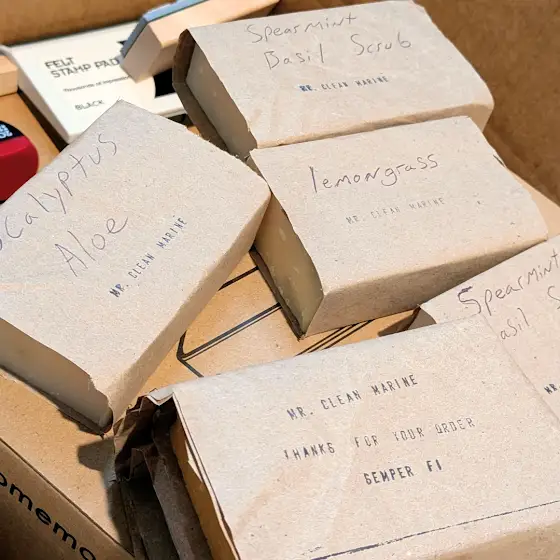 Spearmint
Basil Scrub
MR. CLEAN MARINE
FELT
STAMP PAD
BLACK
lemongrass
MR. CLEAN MARINE
Eucalyptus
Aloe
MR. CLEAN MARINE
Spearmint
MR. CLEAN MARINE
THANKS FOR YOUR ORDER
SEMPER FI